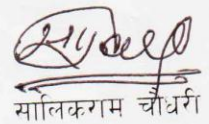 सालिकराम चौधरी